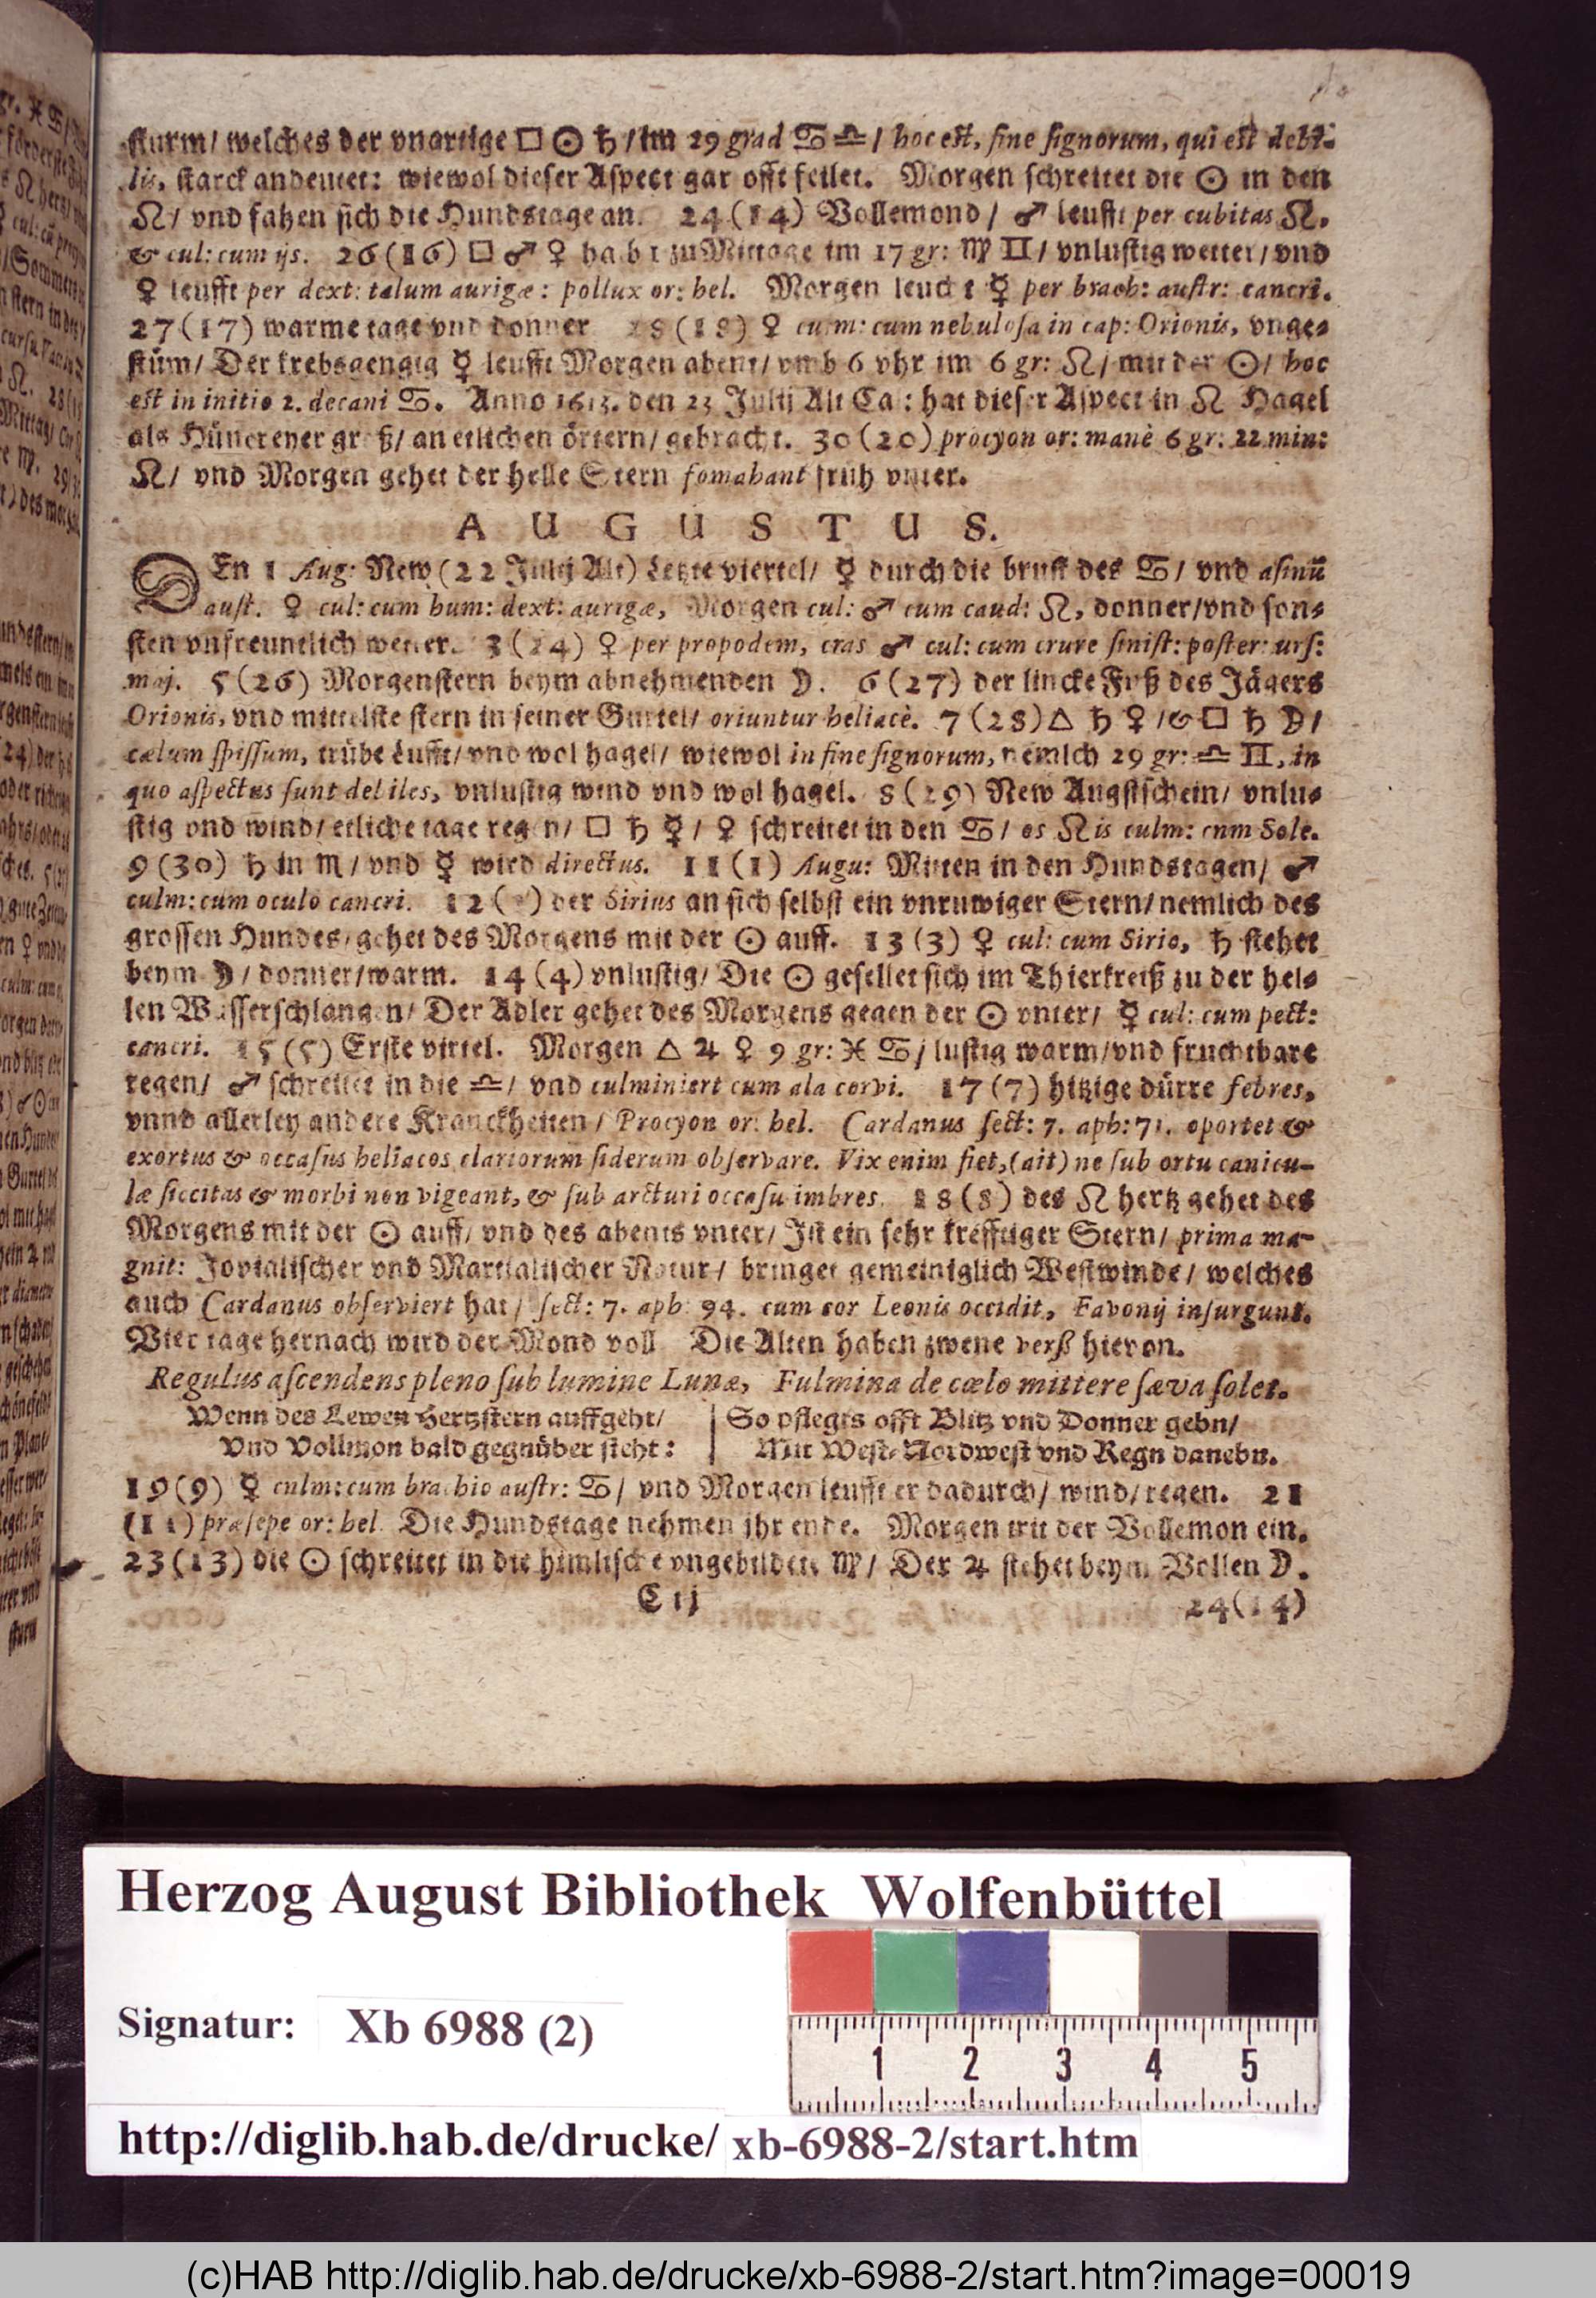 sturm/ welches der vnartige □ ☉ ♄ / im 29 grad ♋ ♎ / hoc est, fine signorum, qui est debi-
lis, starck andeutet: wiewol dieser Aspect gar offt feilet. Morgen schreitet die ☉ in den
♌/ vnd fahen sich die Hundstage an. 24 (14) Vollemond / ♂ leufft per cubitas ♌.
& cul: cum ijs. 26 (16) □ ♂ ♀ halb 1 zu Mittage im 17 gr: ♍ ♊/ vnlustig wetter/ vnd
♀ leufft per dext: talum aurigæ: pollux or: hel. Morgen leucht ☿ per brach: austr: cancri.
27 (17) warme tage vnd donner 28 (18) ♀ cum: cum nebulosa in cap: Orionis, vnge-
stüm/ Der krebsgengig ☿ leufft Morgen abent/ vmb 6 vhr im 6 gr: ♌/ mit der ☉/ hoc
est in initio 2. decani ♋. Anno 1613. den 23 Julij Alt Cal: hat dieser Aspect in ♌ Hagel
als Hünereyer groß/ an etlichen örtern/ gebracht. 30 (20) procyon or: manè 6 gr: 22 min:
♌/ vnd Morgen gehet der helle Stern fomahant früh vnter.
AUGUSTUS.
DEn 1 Aug: New (22 Julij Alt) Letzte viertel/ ☿ durch die brust des ♋/ vnd asinū
aust. ♀ cul: cum hum: dext: aurigæ, Morgen cul: ♂ cum caud: ♌, donner/ vnd son-
sten vnfreuntlich wetter. 3 (24) ♀ per propodem, cras ♂ cul: cum crure sinist: poster: urs:
maj. 5 (26) Morgenstern beym abnehmenden ☽. 6 (27) der lincke Fuß des Jägers
Orionis, vnd mittelste stern in seiner Gürtel/ oriuntur heliacè. 7 (28) △ ♄ ♀ / & □ ♄ ☽/
cælum spissum, trübe Lufft/ vnd wol hagel/ wiewol in fine signorum, nemlch 29 gr: ♎ ♊, in
quo aspectus sunt debiles, vnlustig wind vnd wol hagel. 8 (29) New Augstschein/ vnlu-
stig vnd wind/ etliche tage regen/ □ ♄ ☿ / ♀ schreitet in den ♋/ os ♌is culm: cum Sole.
9 (30) ♄ in ♏ / vnd ☿ wird directus. 11 (1) Augu: Mitten in den Hundstagen/ ♂
culm: cum oculo cancri. 12 (2) der Sirius an sich selbst ein vnruwiger Stern/ nemlich des
grossen Hundes/ gehet des Morgens mit der ☉ auff. 13 (3) ♀ cul: cum Sirio, ♄ stehet
beym ☽/ donner/ warm. 14 (4) vnlustig/ Die ☉ gesellet sich im Thierkreiß zu der hel-
len Wasserschlangen/ Der Adler gehet des Morgens gegen der ☉ vnter/ ☿ cul: cum pect:
cancri. 15 (5) Erste virtel. Morgen △ ♃ ♀ 9 gr: ♓ ♋/ lustig warm/ vnd fruchtbare
regen/ ♂ schreitet in die ♎/ vnd culminiert cum ala corvi. 17 (7) hitzige dürre febres,
vnnd allerley andere Kranckheiten/ Procyon or: hel. Cardanus sect: 7. aph: 71. oportet &
exortus & occasus heliacos clariorum siderum observare. Vix enim fiet, (ait) ne sub ortu canicu-
læ siccitas & morbi non vigeant, & sub arcturi occasu imbres. 18 (8) des ♌ hertz gehet des
Morgens mit der ☉ auff/ vnd des abents vnter/ Ist ein sehr krefftiger Stern/ prima ma-
gnit: Jovialischer vnd Martialischer Natur/ bringet gemeiniglich Westwinde/ welches
auch Cardanus observiert hat/ sect: 7. aph: 94. cum cor Leonis occidit, Favonij insurgunt.
Vier tage hernach wird der Mond voll Die Alten haben zwene verß hievon.
Regulus ascendens pleno sub lumine Lunæ, Fulmina de cœlo mittere sæva solet.
Wenn des Lewen Hertzstern auffgeht/ | So pflegts offt Blitz vnd Donner gebn/
Vnd Vollmon bald gegnüber steht: | Mit West- Nordwest vnd Regn danebn.
19 (9) ☿ culm: cum brachio austr: ♋/ vnd Morgen leufft er dadurch/ wind/ regen. 21
(11) præsepe or: hel. Die Hundstage nehmen jhr ende. Morgen trit der Vollemon ein.
23 (13) die ☉ schreitet in die himlische vngebildete ♍/ Der ♃ stehet beym Vollen ☽.
C ij 24 (14)
Herzog August Bibliothek Wolfenbüttel
Signatur: Xb 6988 (2)
1 2 3 4 5
http://diglib.hab.de/drucke/ xb-6988-2/start.htm
(c)HAB http://diglib.hab.de/drucke/xb-6988-2/start.htm?image=00019